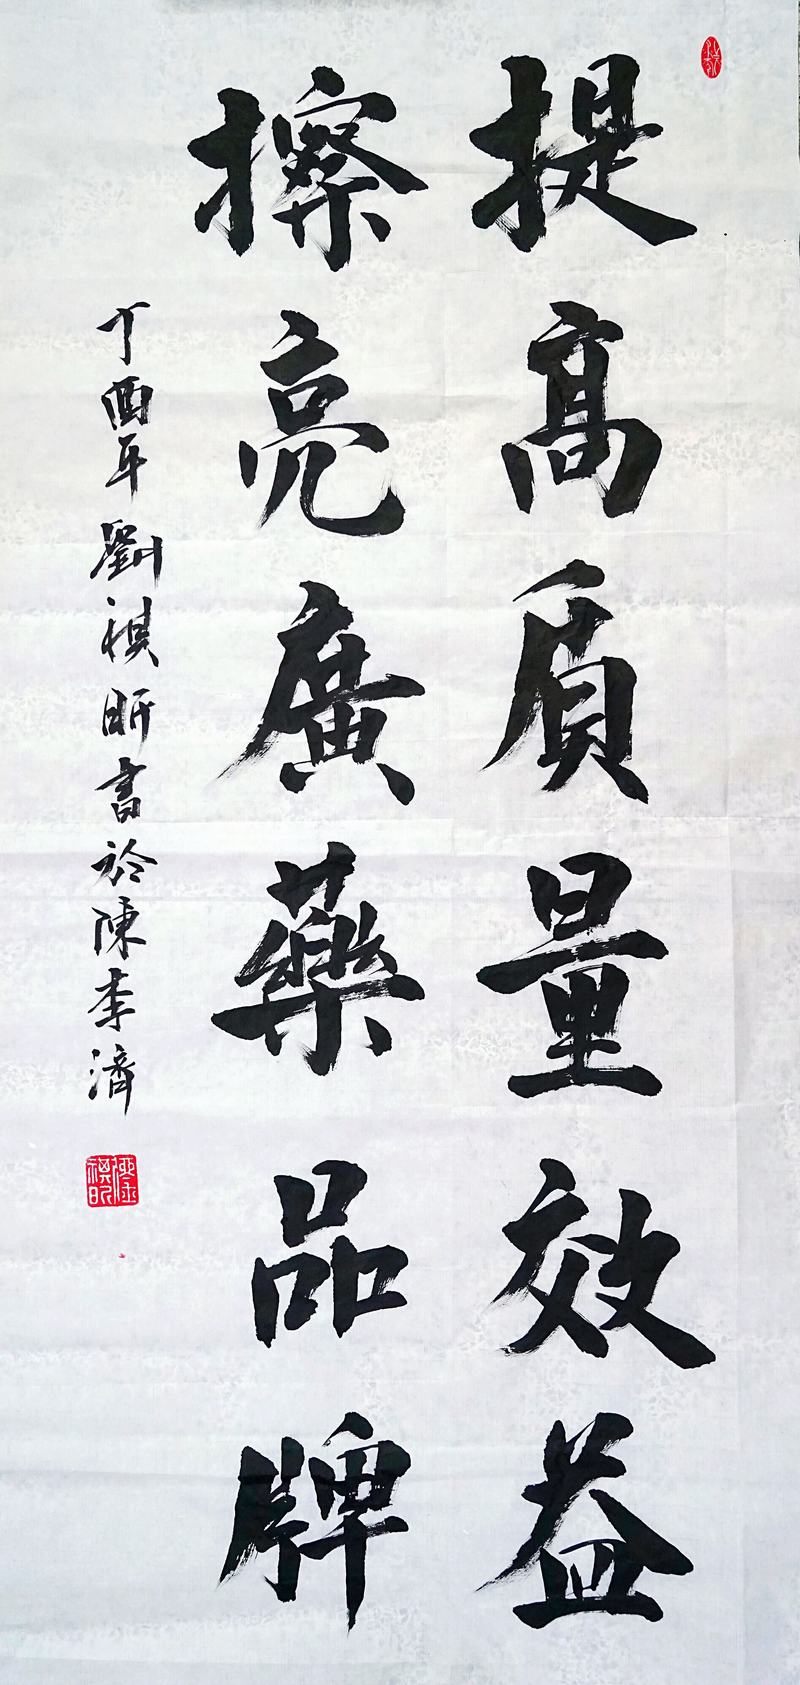 提高质量效益
擦亮廣藥品牌
丁酉年劉祺昕書於陳李濟